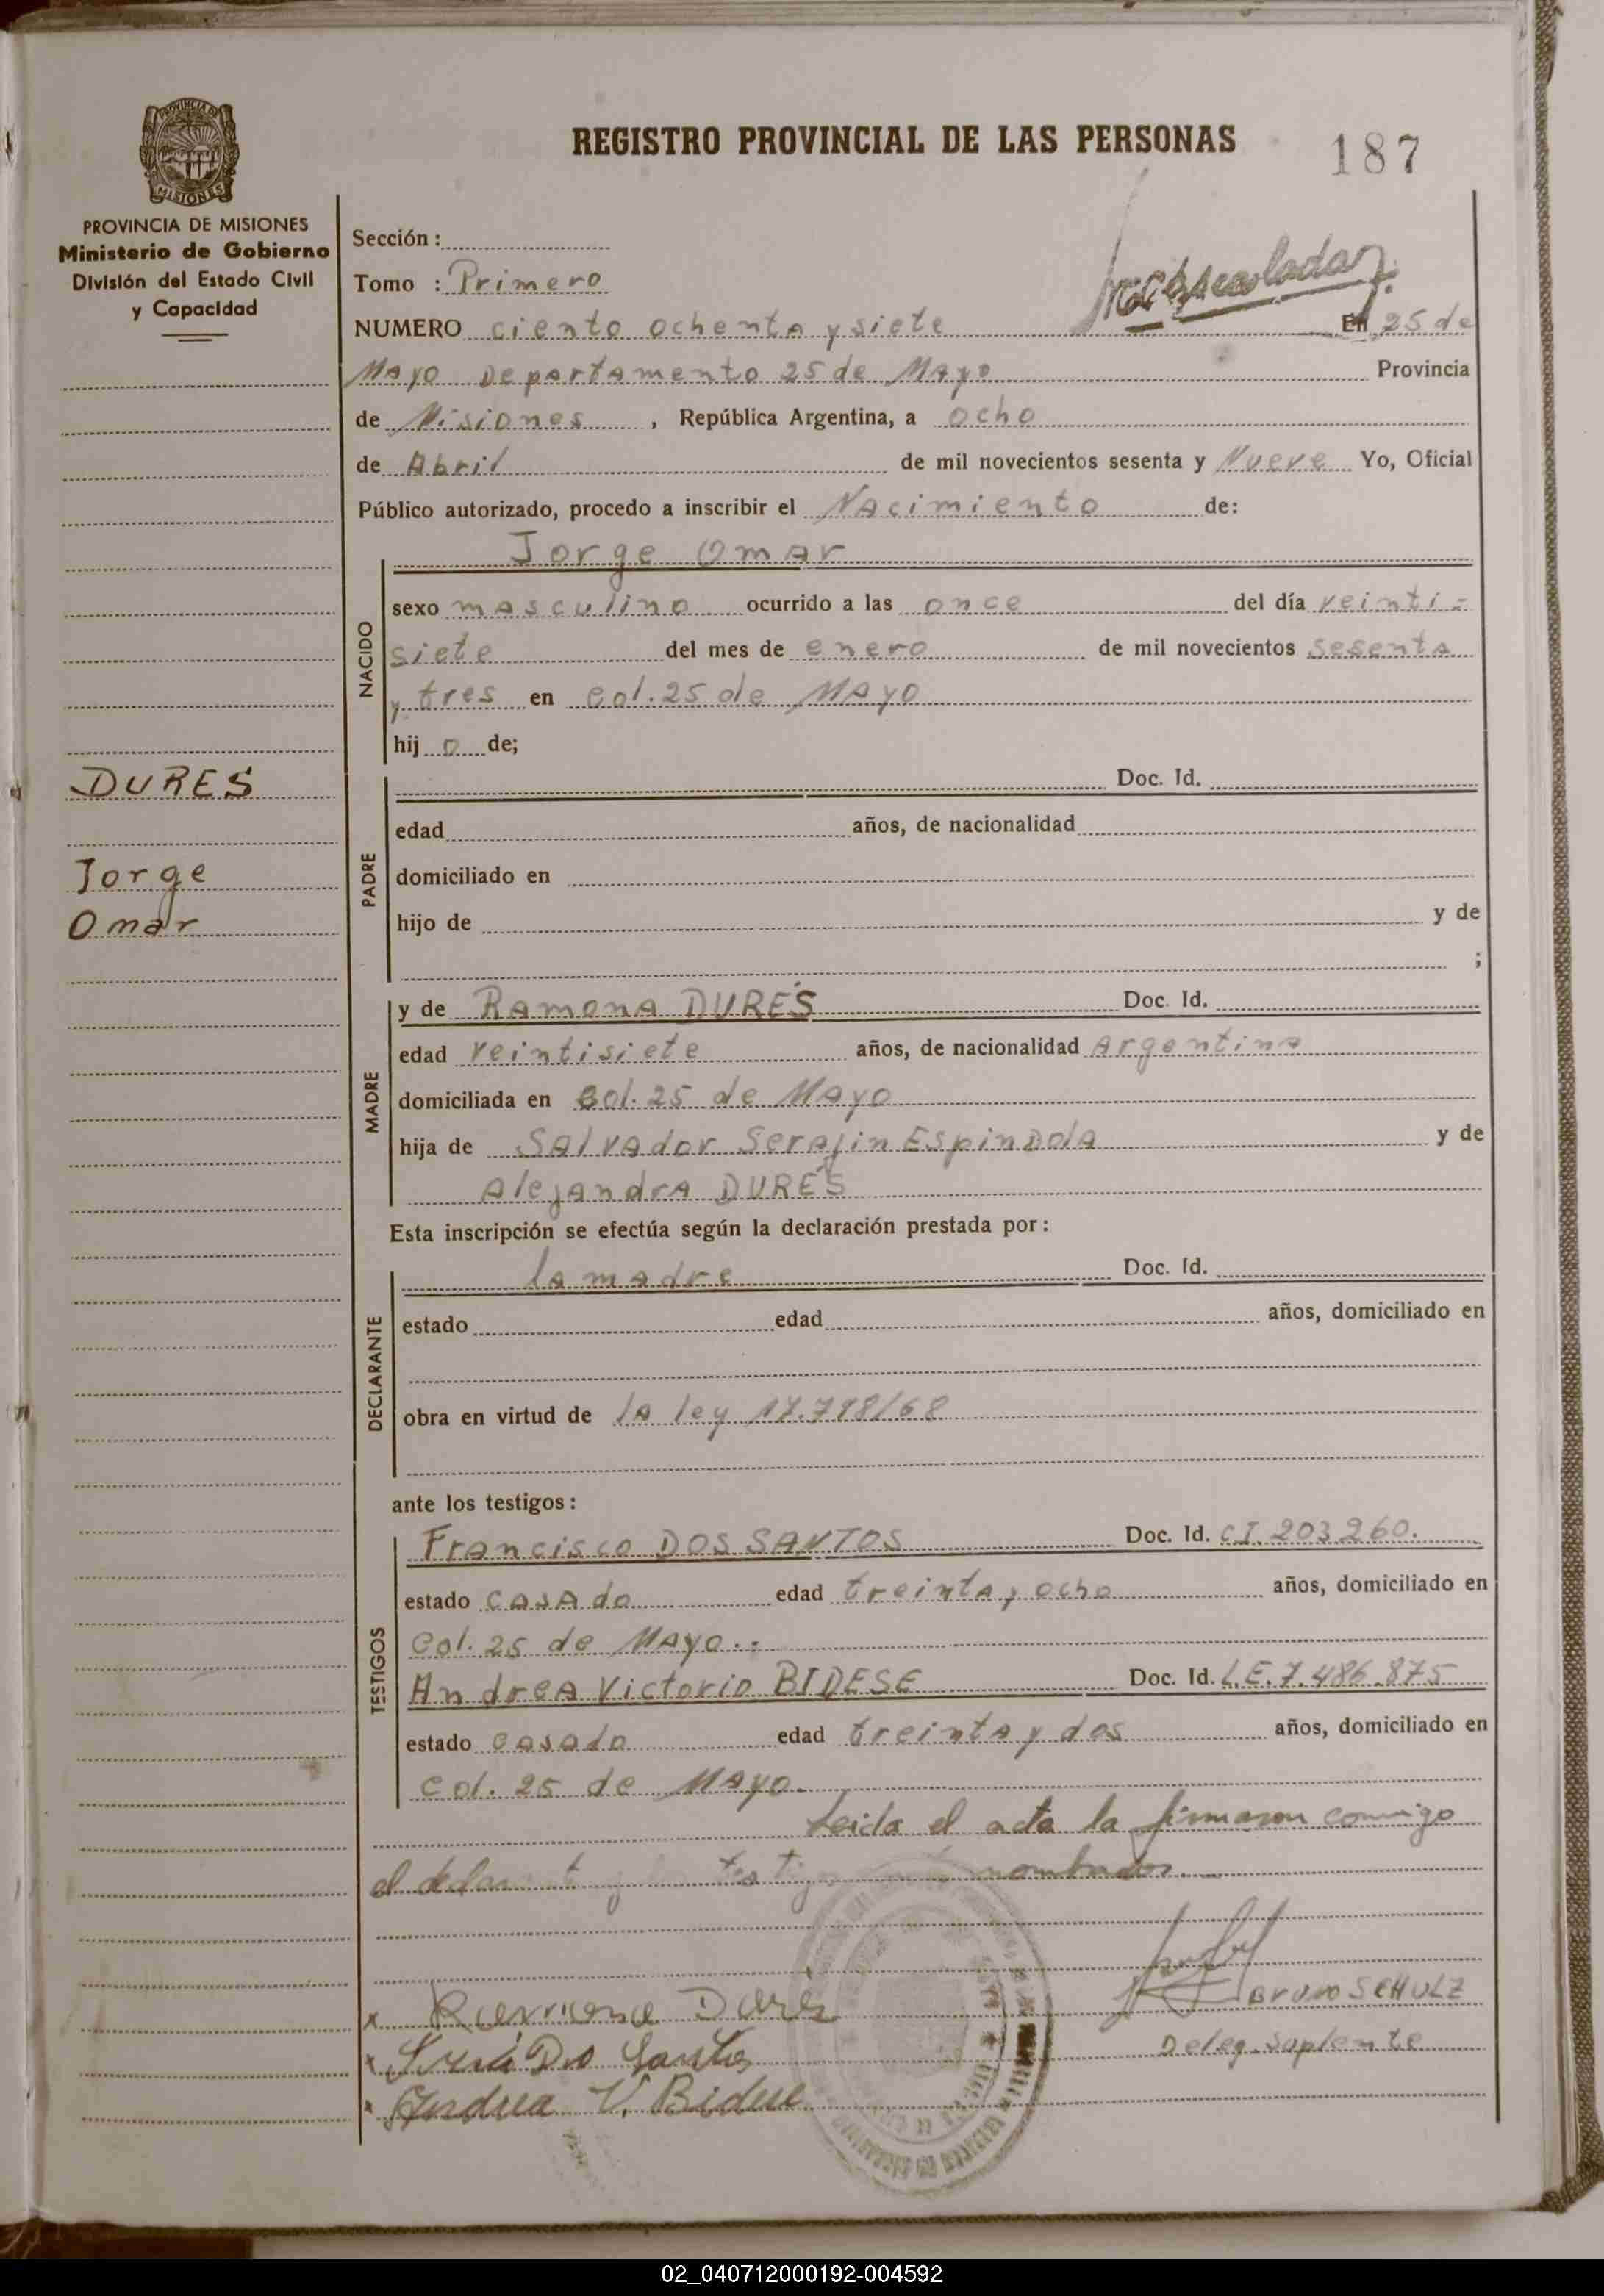 REGISTRO PROVINCIAL DE LAS PERSONAS
187
PROVINCIA DE MISIONES
Ministerio de Gobierno
División del Estado Civil
y Capacidad
Sección :
Tomo : Primero
NUMERO ciento ochenta y siete En 25 de
Mayo Departamento 25 de Mayo Provincia
de Misiones , República Argentina, a ocho
de Abril de mil novecientos sesenta y Nueve Yo, Oficial
Público autorizado, procedo a inscribir el Nacimiento de:
Jorge Omar
NACIDO
sexo masculino ocurrido a las once del día veinti-
siete del mes de enero de mil novecientos sesenta
y tres en col. 25 de Mayo
hij o de;
DURES
Jorge
Omar
PADRE
Doc. Id.
edad años, de nacionalidad
domiciliado en
hijo de y de
;
MADRE
y de Ramona DURÉS Doc. Id.
edad veintisiete años, de nacionalidad Argentina
domiciliada en col. 25 de Mayo
hija de Salvador Serafin Espindola y de
Alejandra DURÉS
Esta inscripción se efectúa según la declaración prestada por :
DECLARANTE
la madre Doc. Id.
estado edad años, domiciliado en
obra en virtud de la ley
ante los testigos :
TESTIGOS
Francisco DOS SANTOS Doc. Id. C.I. 203260.
estado casado edad treinta y ocho años, domiciliado en
col. 25 de Mayo.-
Andrea Victorio BIDESE Doc. Id. L.E. 7.486.875
estado casado edad treinta y dos años, domiciliado en
col. 25 de Mayo.
Leida el acta la firmaron conmigo
el nombrados.
Ramona Durés
Dos Santos
Andrea V. Bidese
BRUNO SCHULZ
Deleg. Suplente
02_040712000192-004592